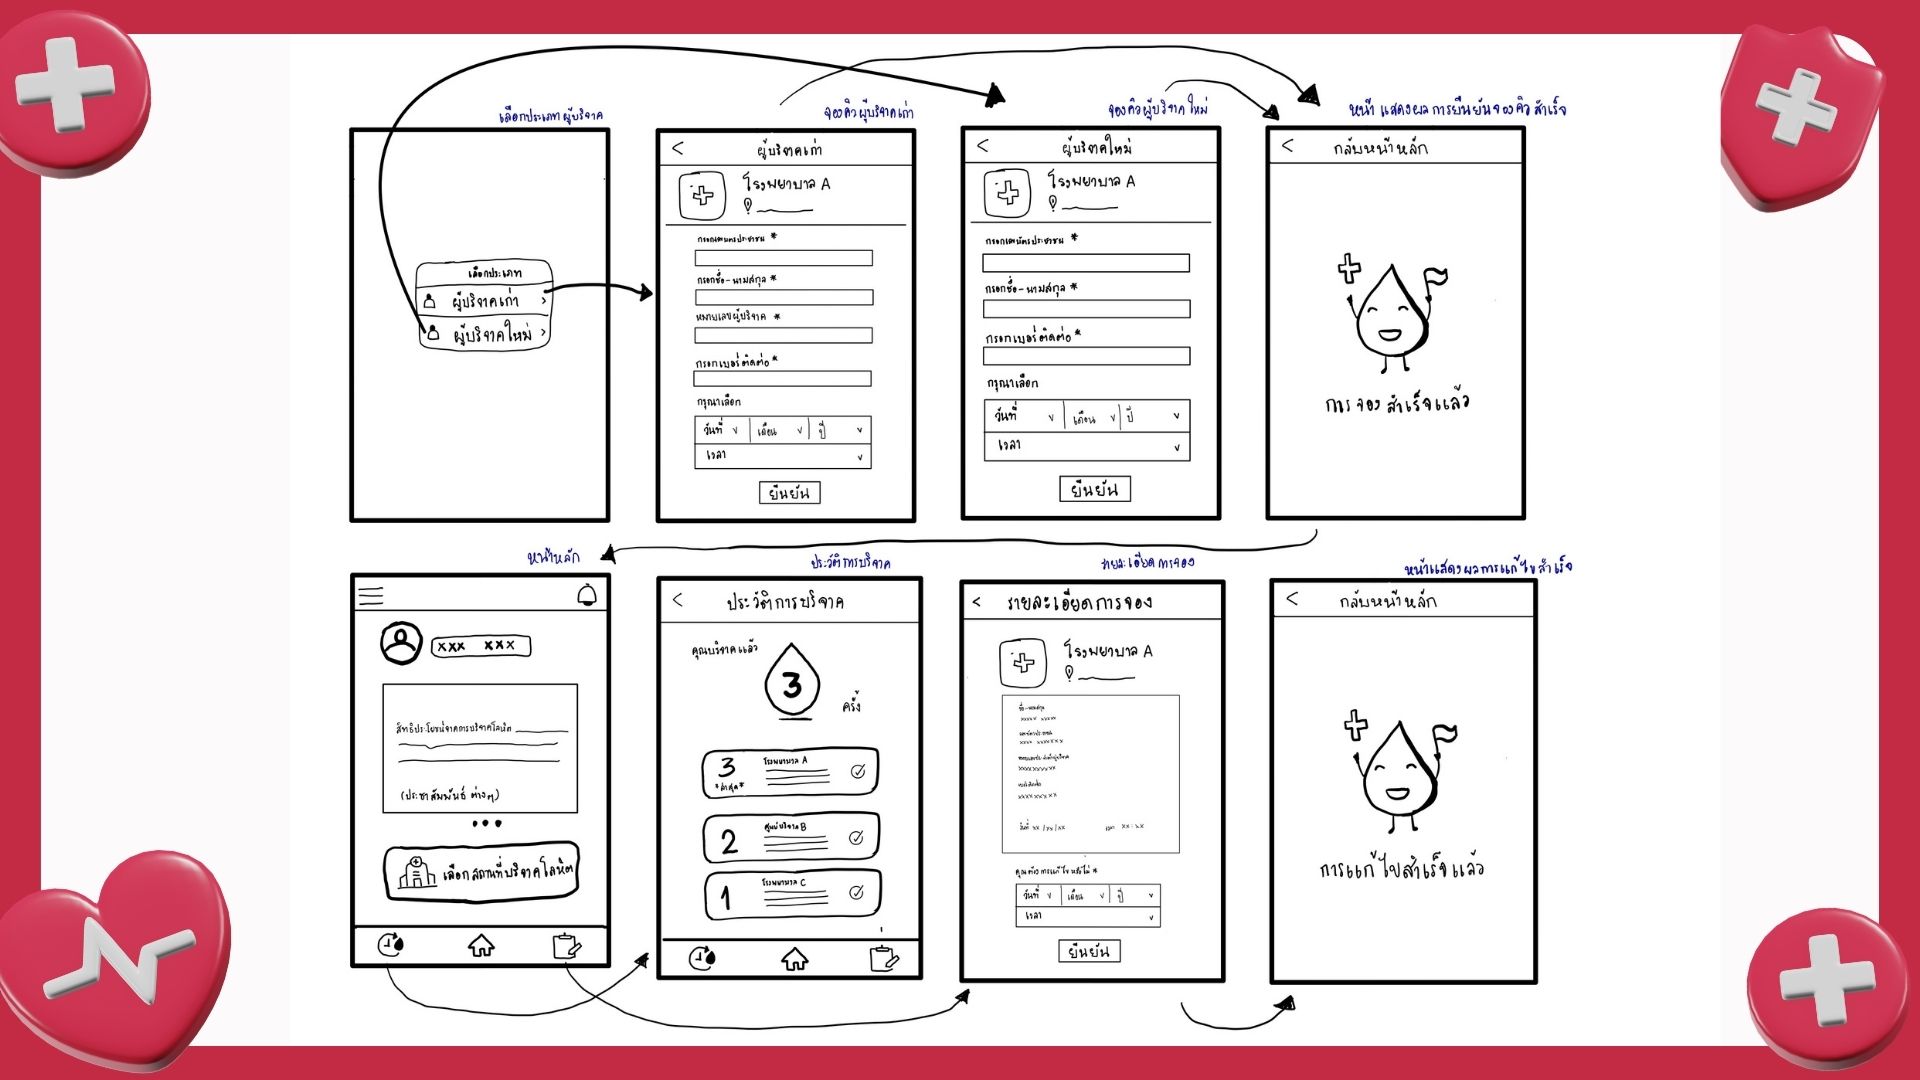 เลือกประเภทผู้บริจาค
เลือกประเภท
ผู้บริจาคเก่า
ผู้บริจาคใหม่
จองคิวผู้บริจาคเก่า
ผู้บริจาคเก่า
โรงพยาบาล A
กรอกเลขบัตรประชาชน *
กรอกชื่อ-นามสกุล *
หมายเลขผู้บริจาค *
กรอกเบอร์ติดต่อ *
กรุณาเลือก
วันที่ เดือน ปี
เวลา
ยืนยัน
จองคิวผู้บริจาคใหม่
ผู้บริจาคใหม่
โรงพยาบาล A
กรอกเลขบัตรประชาชน *
กรอกชื่อ-นามสกุล *
กรอกเบอร์ติดต่อ *
กรุณาเลือก
วันที่ เดือน ปี
เวลา
ยืนยัน
หน้าแสดงผลการยืนยันจองคิวสำเร็จ
กลับหน้าหลัก
การจองสำเร็จแล้ว
หน้าหลัก
xxx xxx
สิทธิประโยชน์จากการบริจาคโลหิต
(ประชาสัมพันธ์ ต่างๆ)
เลือกสถานที่บริจาคโลหิต
ประวัติการบริจาค
ประวัติการบริจาค
คุณบริจาคแล้ว
3
ครั้ง
3
*ล่าสุด*
โรงพยาบาล A
2
ศูนย์บริจาค B
1
โรงพยาบาล C
รายละเอียดการจอง
รายละเอียดการจอง
โรงพยาบาล A
ชื่อ-นามสกุล
xxxx xxxx
วันที่ xx/xx/xx เวลา xx:xx
คุณต้องการแก้ไขหรือไม่ *
วันที่ เดือน ปี
เวลา
ยืนยัน
หน้าแสดงผลการแก้ไขสำเร็จ
กลับหน้าหลัก
การแก้ไขสำเร็จแล้ว